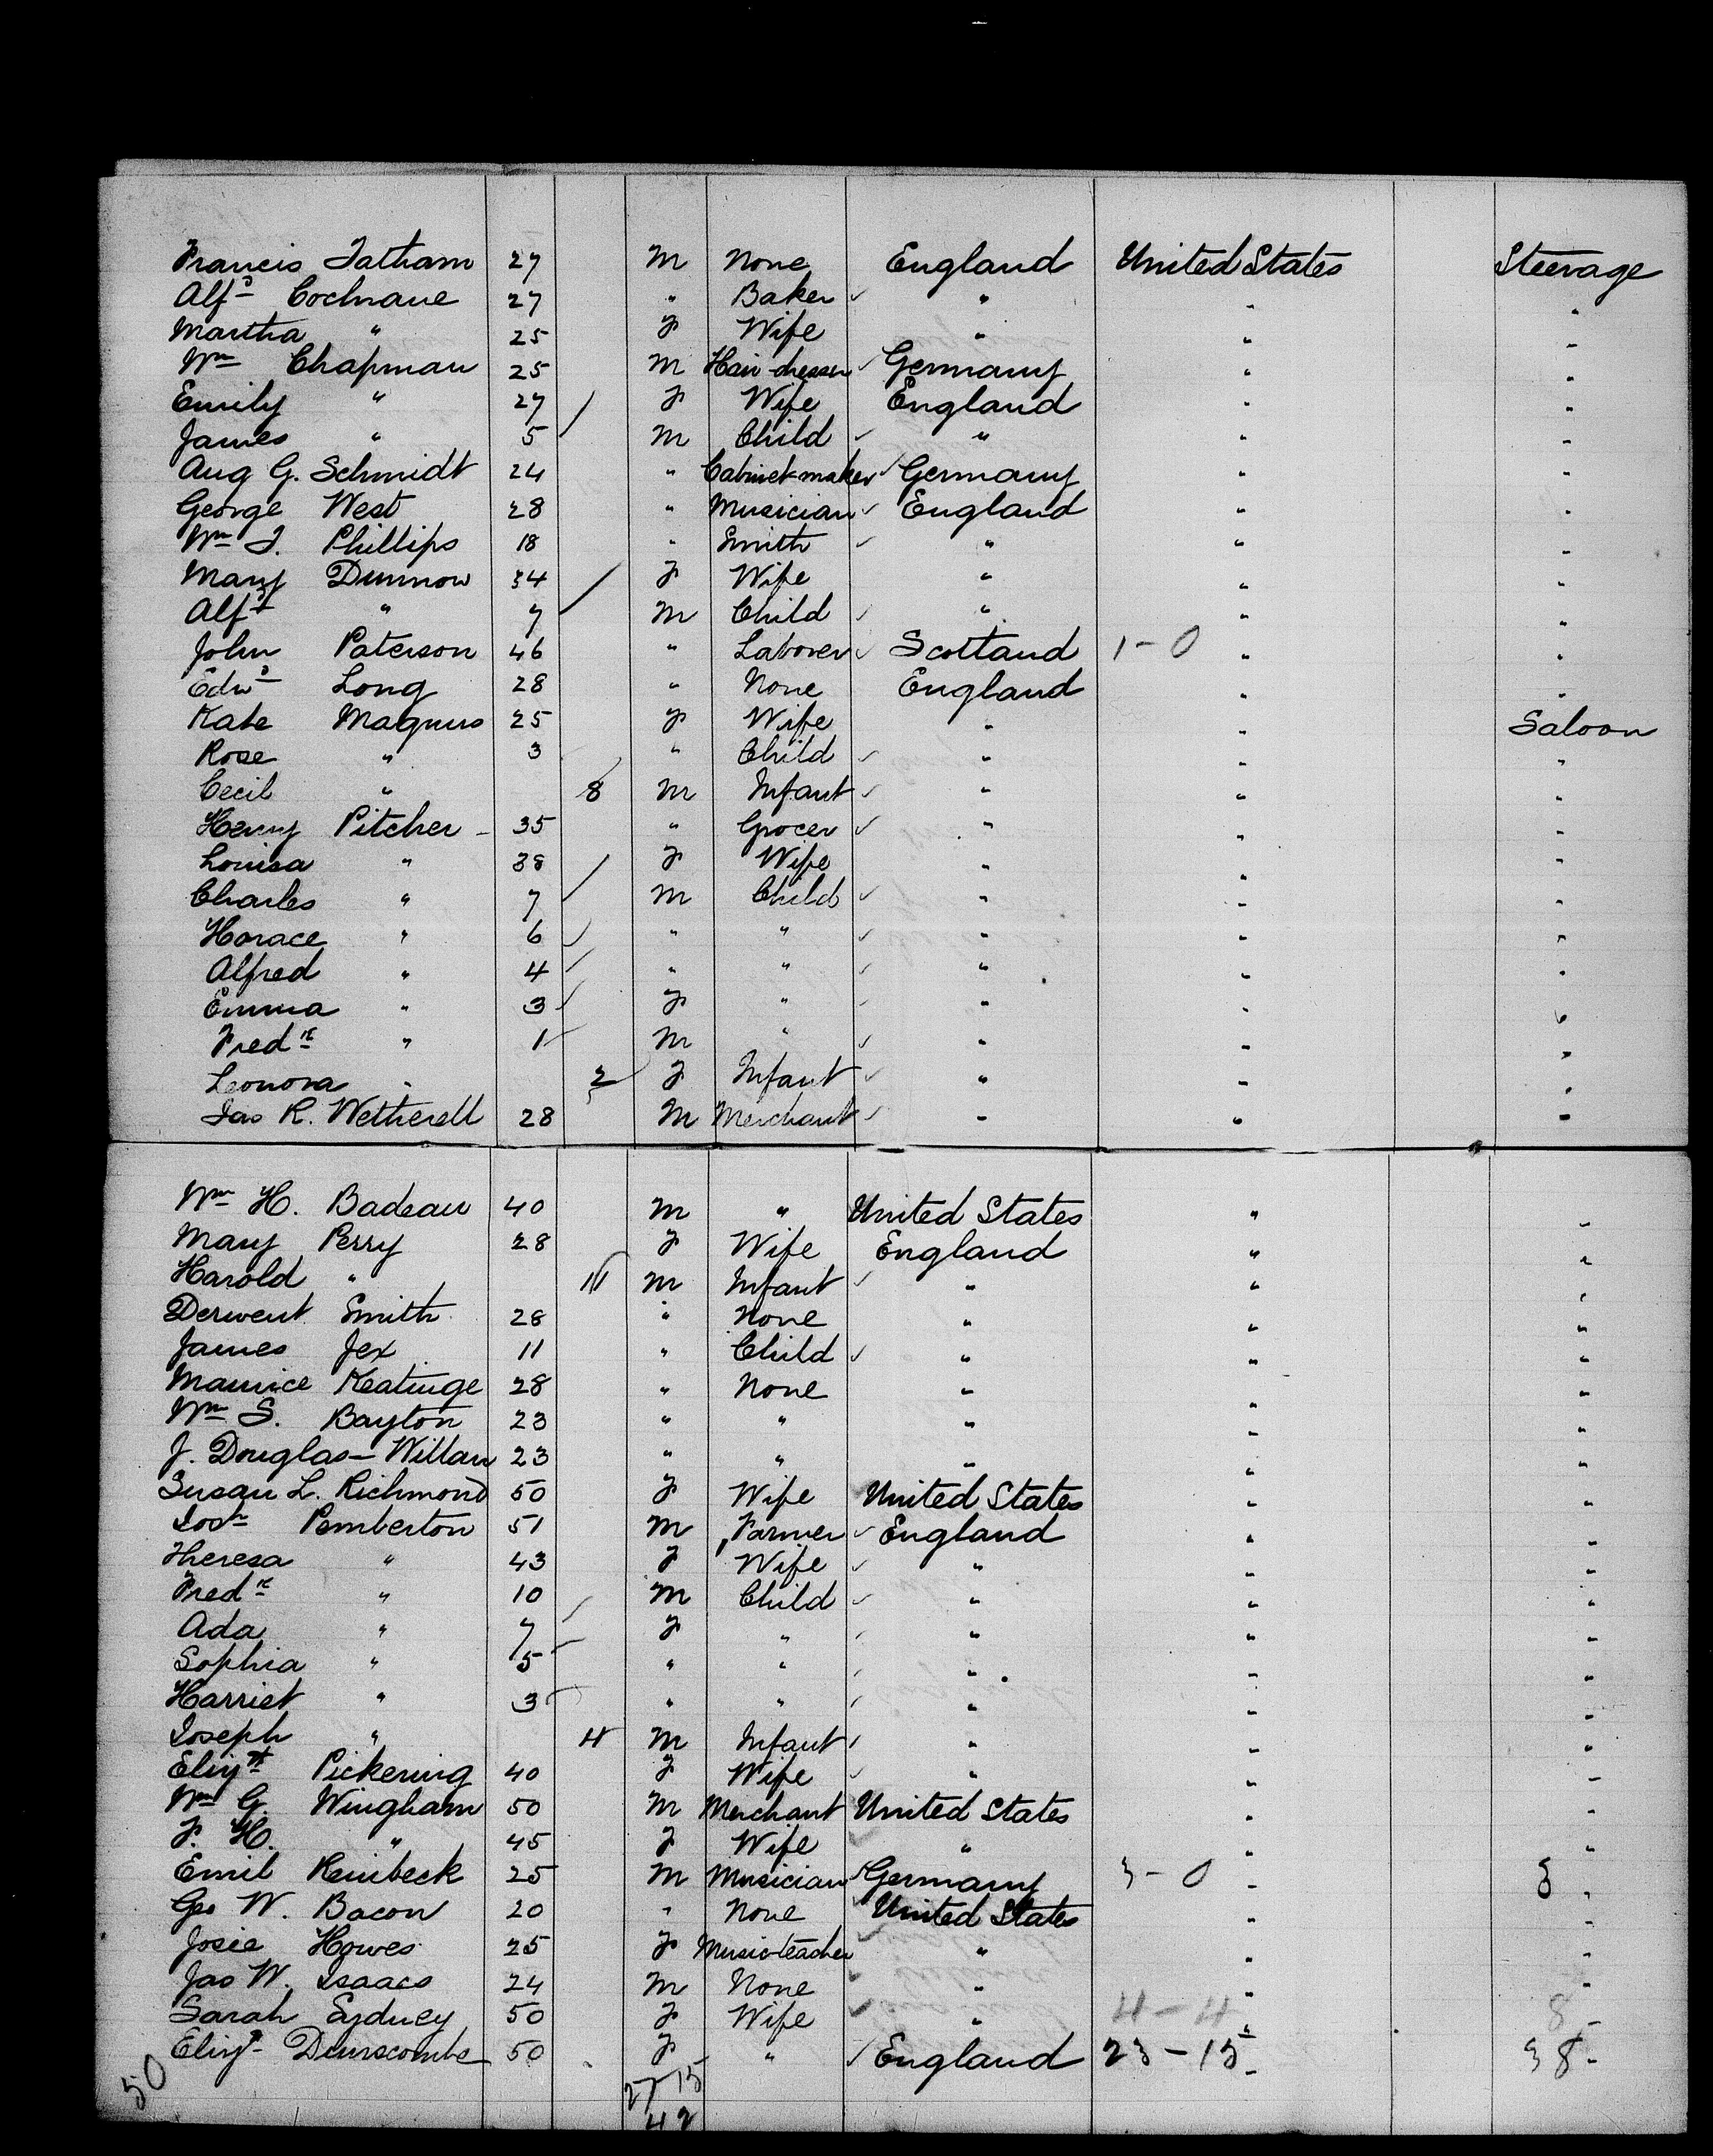 Francis Tatham 27 M None England United States Steerage
Alfd Cochrane 27 " Baker " " "
Martha " 25 F Wife " " "
Wm Chapman 25 M Hair-dresser Germany " "
Emily " 27 F Wife England " "
James " 5 M Child " " "
Aug G. Schmidt 24 " Cabinet-maker Germany " "
George West 28 " Musician England " "
Wm J. Phillips 18 " Smith " " "
Mary Dunnow 34 F Wife " " "
Alfd " 7 M Child " " "
John Paterson 46 " Laborer Scotland 1-0 " "
Edwd Long 28 " None England " "
Kate Magnus 25 F Wife " " Saloon
Rose " 3 " Child " " "
Cecil " 8 M Infant " " "
Henry Pitcher 35 " Grocer " " "
Louisa " 38 F Wife " " "
Charles " 7 M Child " " "
Horace " 6 " " " " "
Alfred " 4 " " " " "
Emma " 3 F " " " "
Fredk " 1 M " " " "
Leonora " 2 F Infant " " "
Jas R. Wetherell 28 M Merchant " " "
Wm H. Badeau 40 M " United States " "
Mary Perry 28 F Wife England " "
Harold " 11 M Infant " " "
Derwent Smith 28 " None " " "
James Jex 11 " Child " " "
Maurice Keatinge 28 " None " " "
Wm S. Bayton 23 " " " " "
J. Douglas-Willan 23 " " " " "
Susan L. Richmond 50 F Wife United States " "
Josh Pemberton 51 M Farmer England " "
Theresa " 43 F Wife " " "
Fredk " 10 M Child " " "
Ada " 7 F " " " "
Sophia " 5 " " " " "
Harriet " 3 " " " " "
Joseph " 4 M Infant " " "
Elizth Pickering 40 F Wife " " "
Wm G. Wingham 50 M Merchant United States " "
F. H. " 45 F Wife " " "
Emil Reinbeck 25 M Musician Germany 3-0 " 8 "
Geo W. Bacon 20 " None United States " "
Josie Howes 25 F Music-teacher " " "
Jas W. Isaacs 24 M None " " "
Sarah Sydney 50 F Wife " 4-4 " 8 "
Elizth Dunscombe 50 F " England 23-15 " 38 "
50 27 15
42